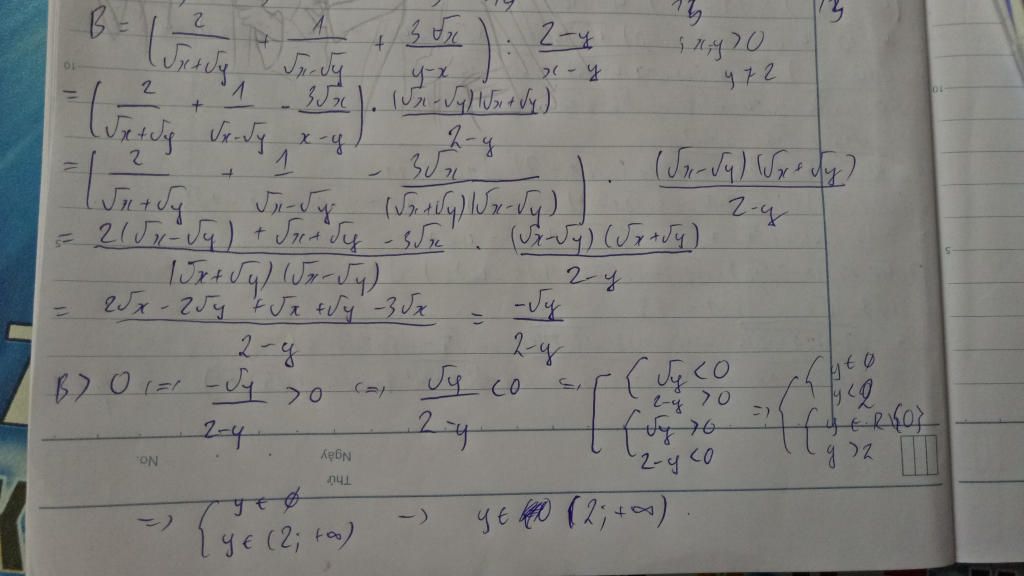 B = ( 2/(√x+√y) + 1/(√x-√y) + 3√x/(y-x) ) : (2-y)/(x-y) ; x,y > 0
y ≠ 2
= ( 2/(√x+√y) + 1/(√x-√y) - 3√x/(x-y) ) . (√x-√y)(√x+√y)/(2-y)
= ( 2/(√x+√y) + 1/(√x-√y) - 3√x/((√x+√y)(√x-√y)) ) . (√x-√y)(√x+√y)/(2-y)
= (2(√x-√y) + √x+√y - 3√x)/((√x+√y)(√x-√y)) . (√x-√y)(√x+√y)/(2-y)
= (2√x - 2√y + √x + √y - 3√x)/(2-y) = -√y/(2-y)
B > 0 (=) -√y/(2-y) > 0 (=) √y/(2-y) < 0 =) [ { √y < 0 ; 2-y > 0 } { √y > 0 ; 2-y < 0 } =) [ { y ∈ ∅ ; y < 2 } { y ∈ R\{0} ; y > 2 }
No. Ngày Thứ
=) { y ∈ ∅ ; y ∈ (2; +∞) -) y ∈ (2; +∞).